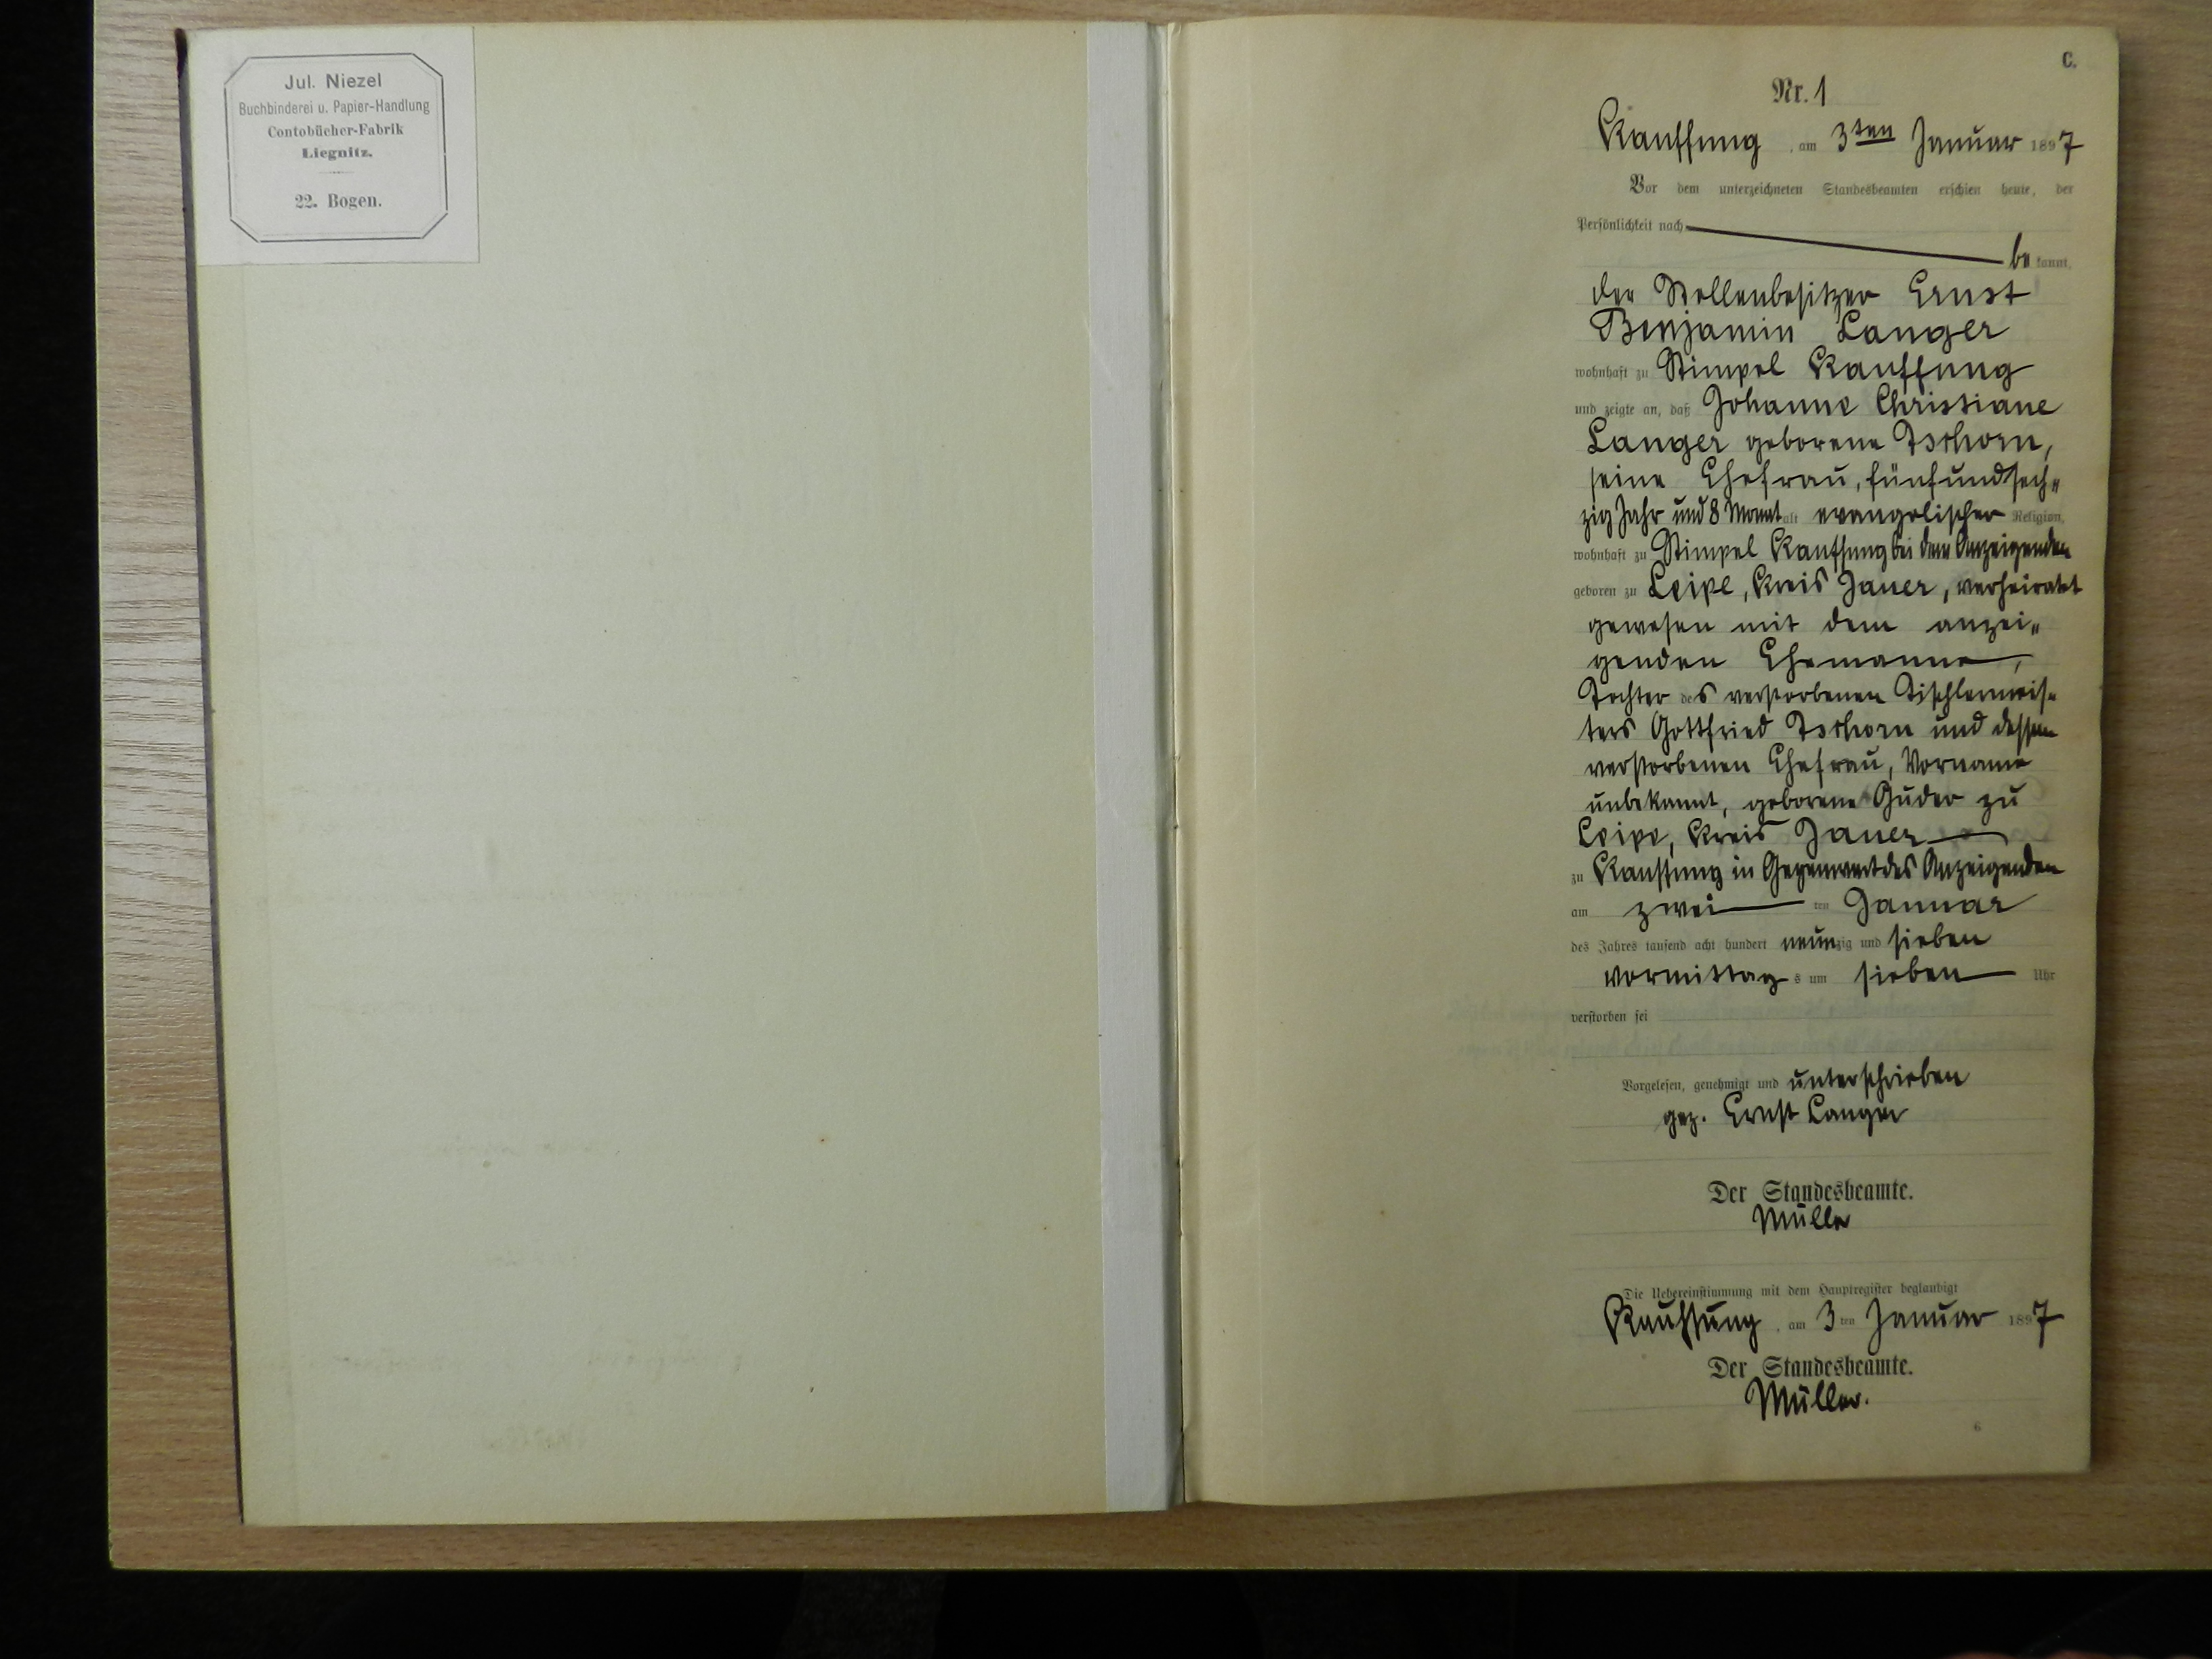 Jul. Niezel
Buchbinderei u. Papier-Handlung
Contobücher-Fabrik
Liegnitz.
22. Bogen.
C.
Nr. 1
Kauffung, am 3ten Januar 1897
Vor dem unterzeichneten Standesbeamten erschien heute, der
Persönlichkeit nach
bekannt,
der Stellenbesitzer Ernst
Benjamin Langer
wohnhaft zu Stimpel Kauffung
und zeigte an, daß Johanne Christiane
Langer geborene Tschorn,
seine Ehefrau, fünfundsech-
zig Jahr und 8 Monat alt evangelischer Religion,
wohnhaft zu Stimpel Kauffung bei dem Anzeigenden
geboren zu Leipe, Kreis Jauer, verheiratet
gewesen mit dem anzei-
genden Ehemanne,
Tochter des verstorbenen Tischlermeis-
ters Gottfried Tschorn und dessen
verstorbenen Ehefrau, Vorname
unbekannt, geborene Guder zu
Leipe, Kreis Jauer
zu Kauffung in Gegenwart des Anzeigenden
am zwei ten Januar
des Jahres tausend acht hundert neunzig und sieben
vormittags um sieben Uhr
verstorben sei
Vorgelesen, genehmigt und unterschrieben
gez. Ernst Langer
Der Standesbeamte.
Müller
Die Uebereinstimmung mit dem Hauptregister beglaubigt
Kauffung, am 3ten Januar 1897
Der Standesbeamte.
Müller.
6